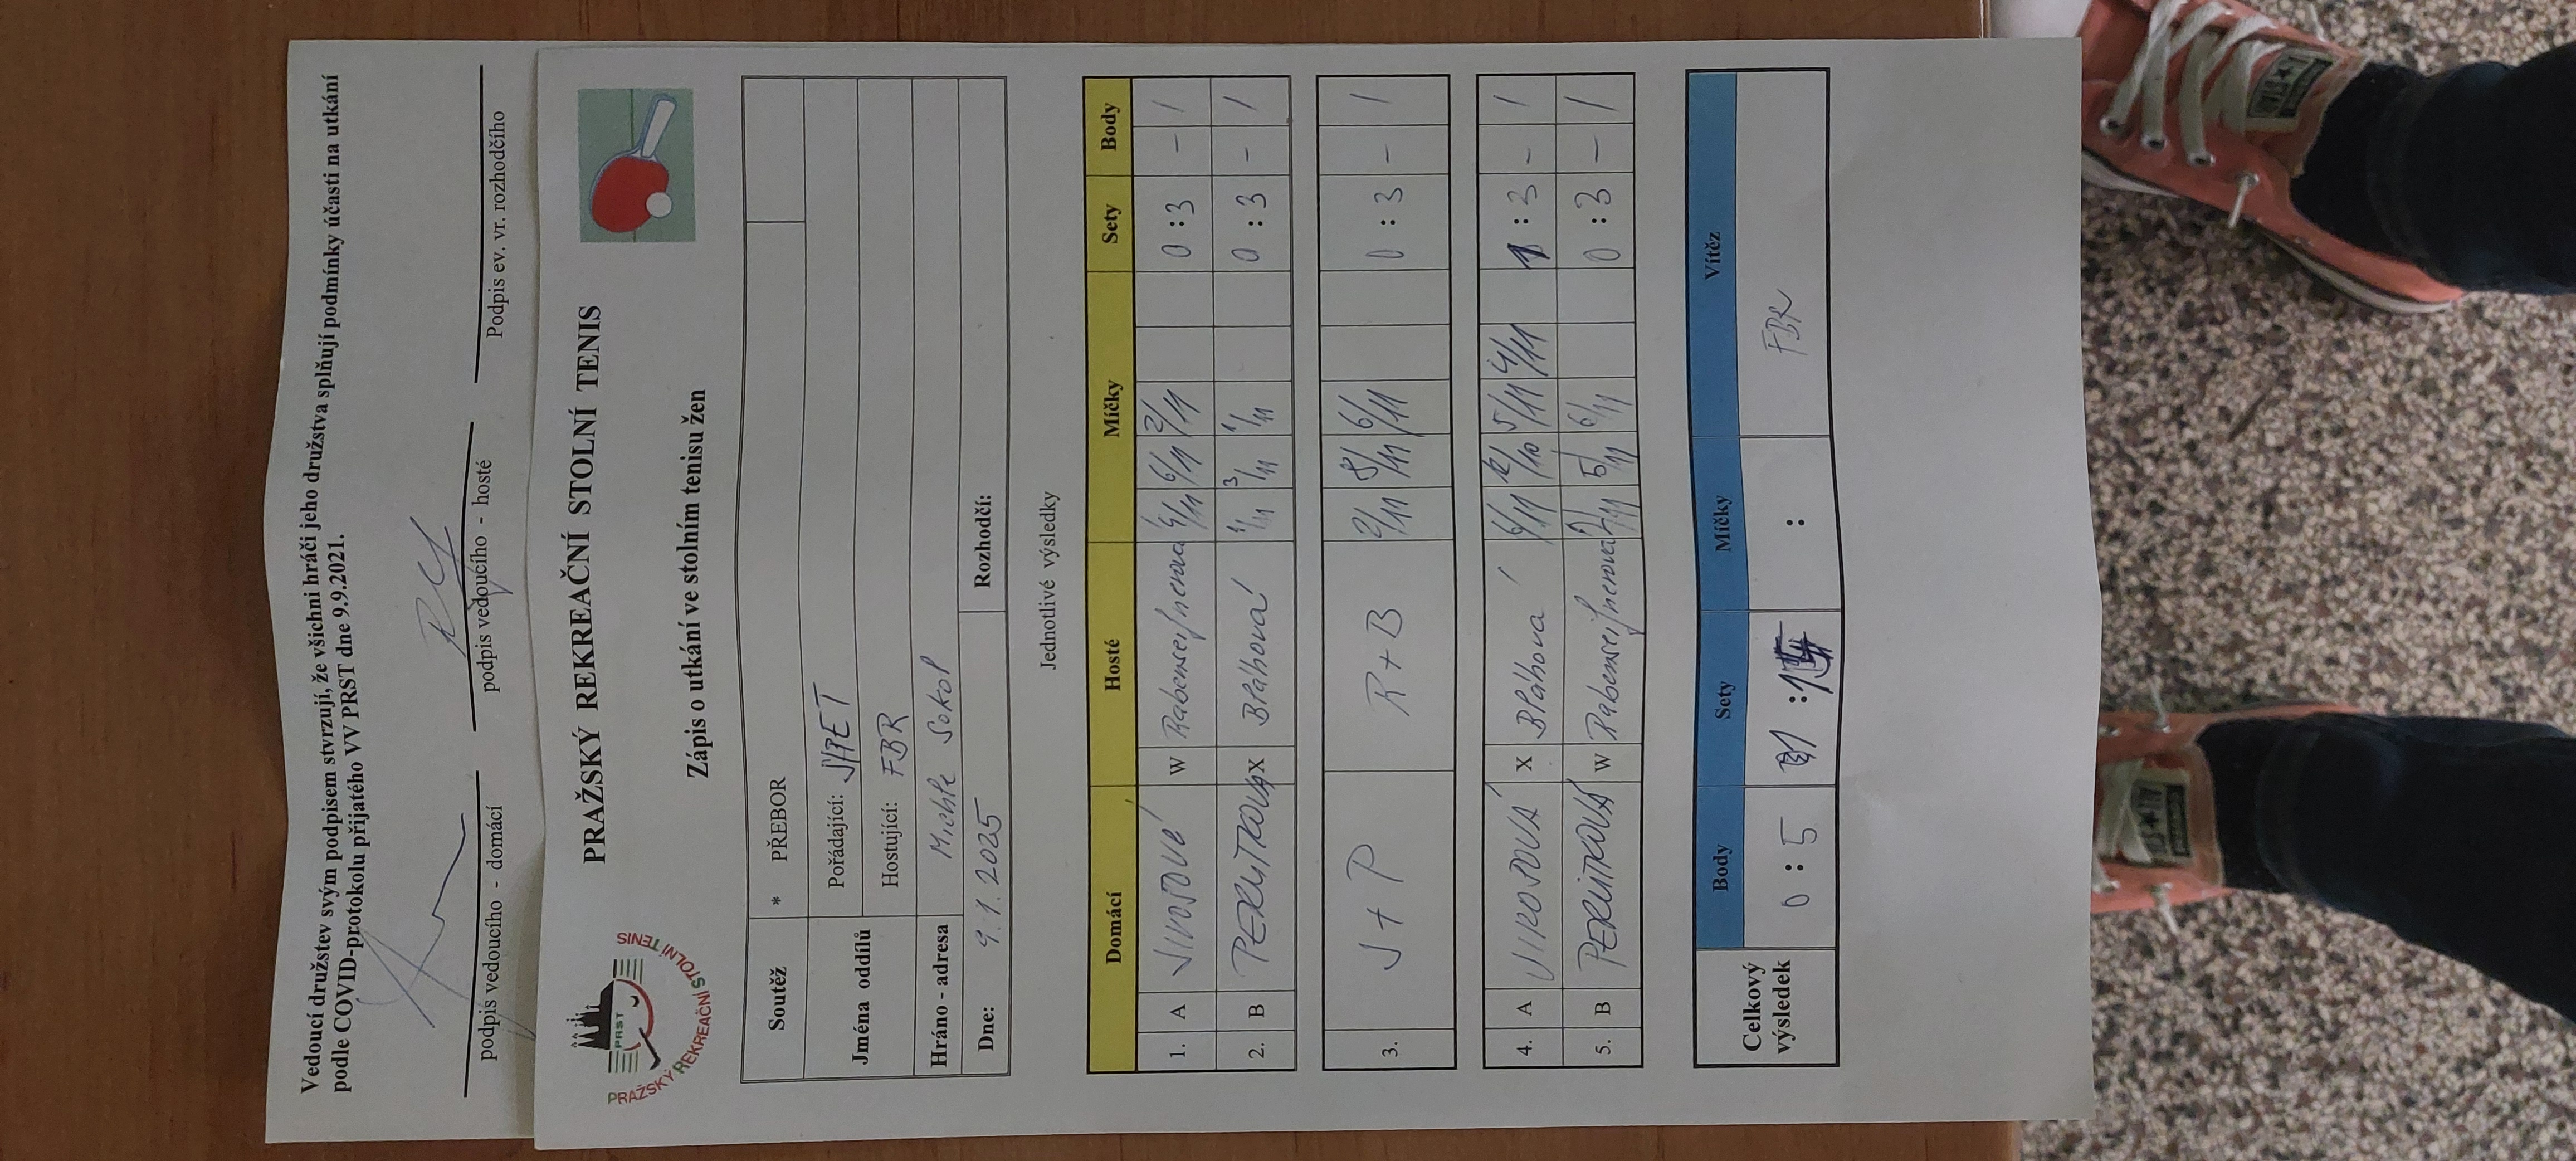 Vedoucí družstev svým podpisem stvrzují, že všichni hráči jeho družstva splňují podmínky účasti na utkání
podle COVID-protokolu přijatého VV PRST dne 9.9.2021.
podpis vedoucího - domácí podpis vedoucího - hosté Podpis ev. vr. rozhodčího
PRAŽSKÝ REKREAČNÍ STOLNÍ TENIS
PRST
PRAŽSKÝ REKREAČNÍ STOLNÍ TENIS
Zápis o utkání ve stolním tenisu žen
Soutěž * PŘEBOR
Jména oddílů Pořádající:
Hostující: FBR
Hráno - adresa Michle Sokol
Dne: 9.1.2025 Rozhodčí:
Jednotlivé výsledky
Domácí Hosté Míčky Sety Body
1. A W 4/11 6/11 2/11 0 : 3 - 1
2. B X Bláhová 1/11 3/11 1/11 0 : 3 - 1
3. J + P R + B 2/11 8/11 6/11 0 : 3 - 1
4. A X Bláhová 6/11 12/10 5/11 4/11 1 : 3 - 1
5. B W 2/11 5/11 6/11 0 : 3 - 1
Body Sety Míčky Vítěz
Celkový výsledek 0 : 5 1 : : FBR